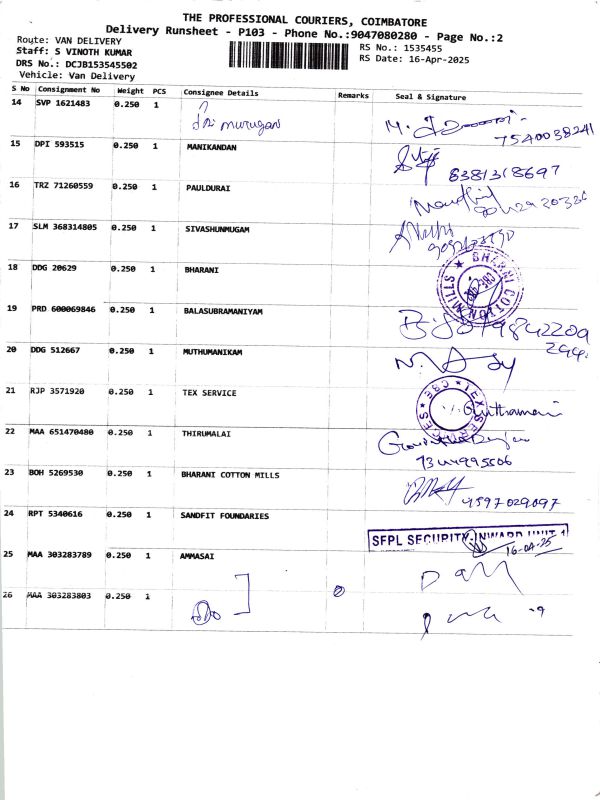 THE PROFESSIONAL COURIERS, COIMBATORE
Delivery Runsheet - P103 - Phone No.:9047080280 - Page No.:2
Route: VAN DELIVERY
Staff: S VINOTH KUMAR
DRS No.: DCJB153545502
Vehicle: Van Delivery
RS No.: 1535455
RS Date: 16-Apr-2025
S No Consignment No Weight PCS Consignee Details Remarks Seal & Signature
14 SVP 1621483 0.250 1 Sri murugan
7540038241
15 DPI 593515 0.250 1 MANIKANDAN
8381318697
16 TRZ 71260559 0.250 1 PAULDURAI
17 SLM 368314805 0.250 1 SIVASHUNMUGAM
18 DDG 20629 0.250 1 BHARANI
BHARANI COTTON MILLS ★ CBE
19 PRD 600069846 0.250 1 BALASUBRAMANIYAM
20 DDG 512667 0.250 1 MUTHUMANIKAM
21 RJP 3571920 0.250 1 TEX SERVICE
TEX SERVICES ★ CBE ★
22 MAA 651470480 0.250 1 THIRUMALAI
23 BOH 5269530 0.250 1 BHARANI COTTON MILLS
9597029097
24 RPT 5340616 0.250 1 SANDFIT FOUNDARIES
SFPL SECURITY INWARD UNIT 1
16-04-25
25 MAA 303283789 0.250 1 AMMASAI
26 MAA 303283803 0.250 1